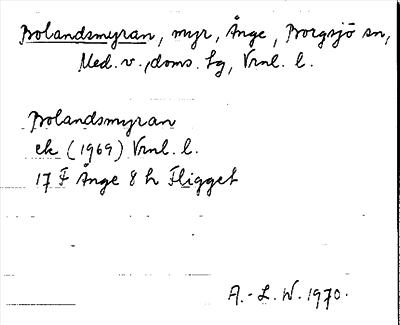 Bolandsmyran, myr, Ånge, Borgsjö sn,
Med. v., doms. lg, Vrnl. l.
Bolandsmyran
ek (1969) Vrnl. l.
17 F Ånge 8 h Fligget
A.-L. W. 1970.